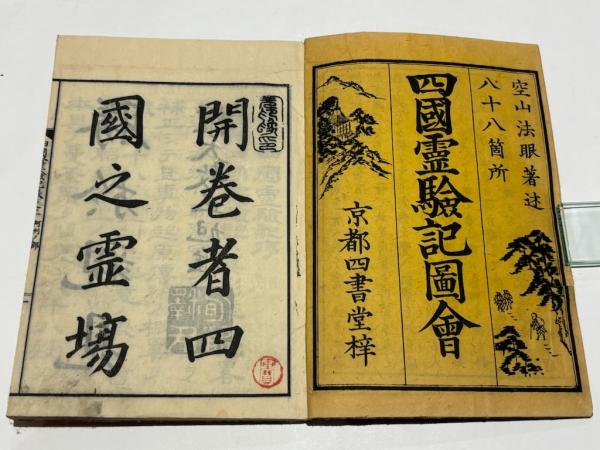 空山法眼著述
八十八箇所
四國霊驗記圖會
京都四書堂梓
開卷者四
國之霊場